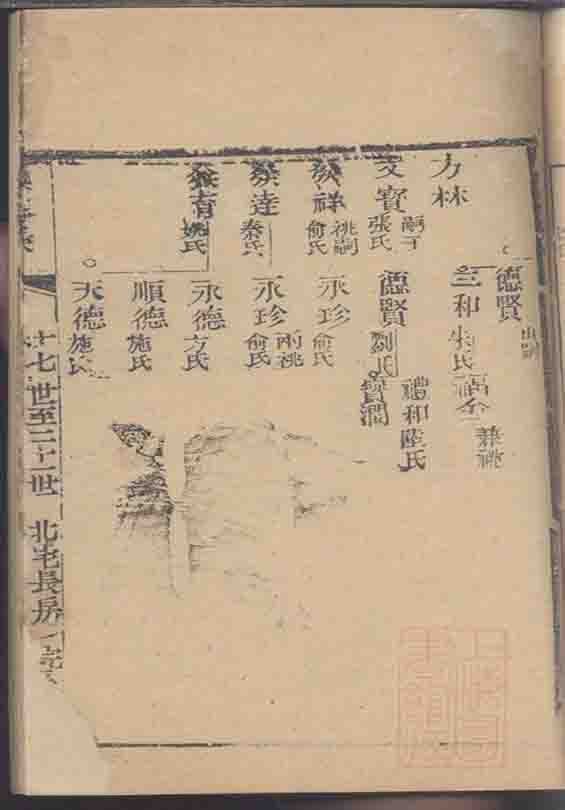 德賢
出嗣
兼祧
三和 朱氏 福全
力林
禮和 陸氏
嗣子
文寶 張氏
德賢 劉氏 寶潤
祧嗣
發祥 俞氏
永珍 俞氏
兩祧
發達 秦氏
永珍 俞氏
發有 姚氏
永德 方氏
順德 施氏
天德 施氏
十七世至二十一世 北宅長房